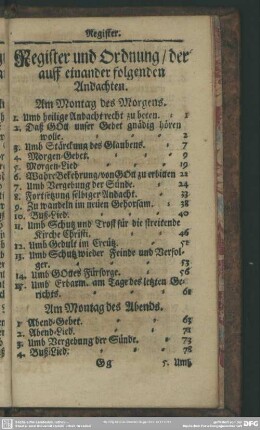 Register.
Register und Ordnung/ der
auff einander folgenden
Andachten.
Am Montag des Morgens.
1. Umb heilige Andacht recht zu beten. 1
2. Daß GOtt unser Gebet gnädig hören
wolle. 2
3. Umb Stärckung des Glaubens. 7
4. Morgen-Gebet. 9
5. Morgen-Lied 19
6. Wahre Bekehrung/ von GOtt zu erbitten 21
7. Umb Vergebung der Sünde. 24
8. Fortsetzung selbiger Andacht.
9. Zu wandeln im neuen Gehorsam. 38
10. Buß-Lied. 40
11. Umb Schutz und Trost für die streitende
Kirche Christi. 46
12. Umb Gedult im Creütz. 51
13. Umb Schutz wieder Feinde und Verfol-
ger. 53
14. Umb GOttes Fürsorge. 56
15. Umb Erbarm. am Tage des letzten Ge-
richts. 61
Am Montag des Abends.
1. Abend-Gebet. 65
2. Abend-Lied. 71
3. Umb Vergebung der Sünde. 73
4. Buß-Lied. 78
Gg 5. Umb
DFG